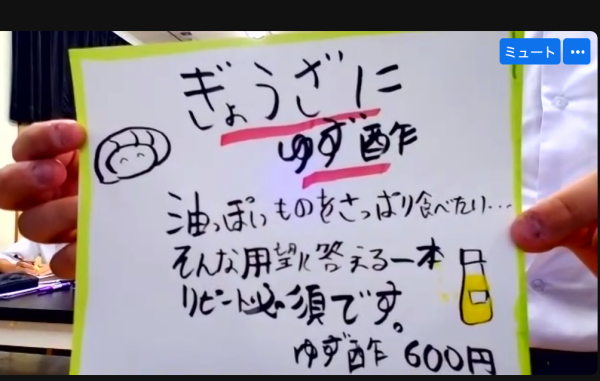 ミュート
ぎょうざに
ゆず酢
油っぽいものをさっぱり食べたい…
そんな用望に答える一本
リピート必須です。
ゆず酢 600円